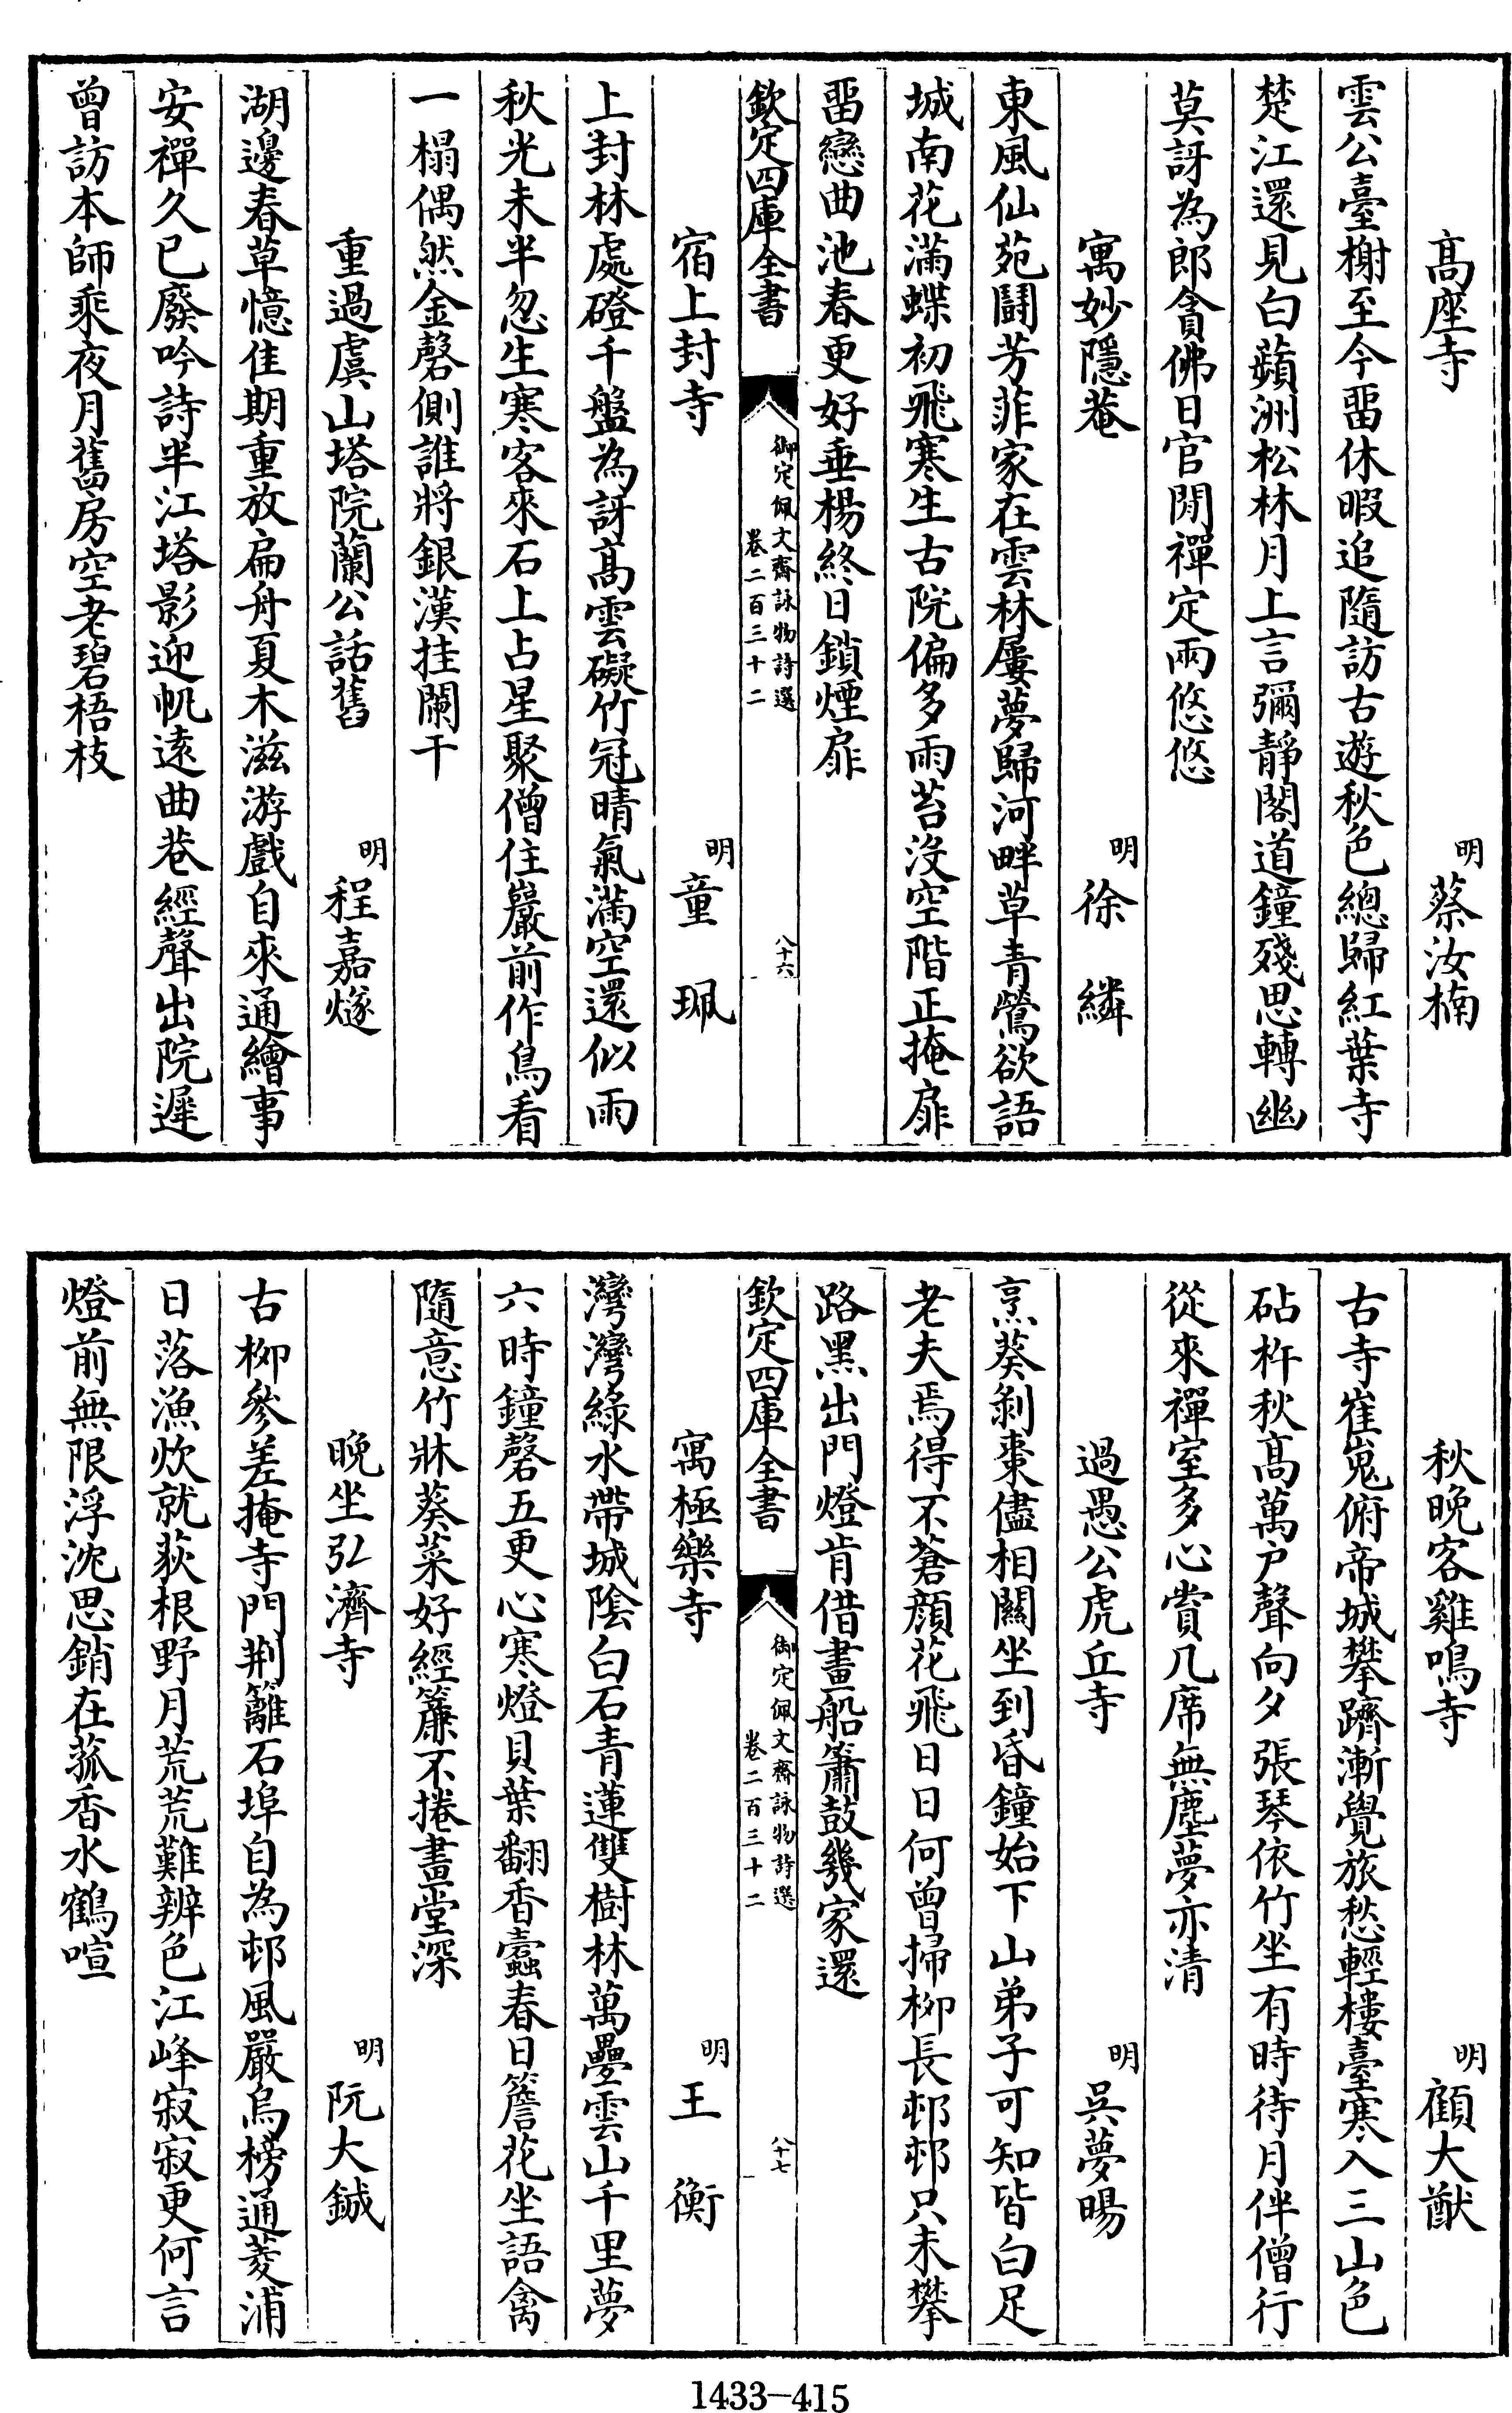 高座寺　明蔡汝楠
雲公臺榭至今畱休暇追隨訪古遊秋色總歸紅葉寺
楚江還見白蘋洲松林月上言彌靜閣道鐘殘思轉幽
莫訝為郎貪佛日官閒禪定兩悠悠
寓妙隱菴　明徐繗
東風仙苑鬪芳菲家在雲林屢夢歸河畔草青鶯欲語
城南花滿蝶初飛寒生古院偏多雨苔沒空階正掩扉
畱戀曲池春更好垂楊終日鎖煙扉
欽定四庫全書　御定佩文齋詠物詩選　卷二百三十二　八十六
宿上封寺　明童珮
上封林處磴千盤為訝髙雲礙竹冠晴氣滿空還似雨
秋光未半忽生寒客來石上占星聚僧住巖前作鳥看
一榻偶然金磬側誰將銀漢挂闌干
重過虞山塔院蘭公話舊　明程嘉燧
湖邊春草憶佳期重放扁舟夏木滋游戲自來通繪事
安禪久已廢吟詩半江塔影迎帆遠曲巷經聲出院遲
曾訪本師乘夜月舊房空老碧梧枝
秋晚客雞鳴寺　明顧大猷
古寺崔嵬俯帝城攀躋漸覺旅愁輕樓臺寒入三山色
砧杵秋髙萬戶聲向夕張琴依竹坐有時待月伴僧行
從來禪室多心賞几席無塵夢亦清
過愚公虎丘寺　明吳夢暘
烹葵剝棗儘相關坐到昏鐘始下山弟子可知皆白足
老夫焉得不蒼顏花飛日日何曾掃柳長邨邨只未攀
路黑出門燈肯借畫船簫鼓幾家還
欽定四庫全書　御定佩文齋詠物詩選　卷二百三十二　八十七
寓極樂寺　明王衡
灣灣綠水帶城陰白石青蓮雙樹林萬疊雲山千里夢
六時鐘磬五更心寒燈貝葉翻香蠹春日簷花坐語禽
隨意竹牀葵菜好經簾不捲畫堂深
晚坐弘濟寺　明阮大鋮
古柳參差掩寺門荆籬石埠自為邨風嚴烏榜通菱浦
日落漁炊就荻根野月荒荒難辨色江峰寂寂更何言
燈前無限浮沈思銷在菰香水鶴喧
1433—415